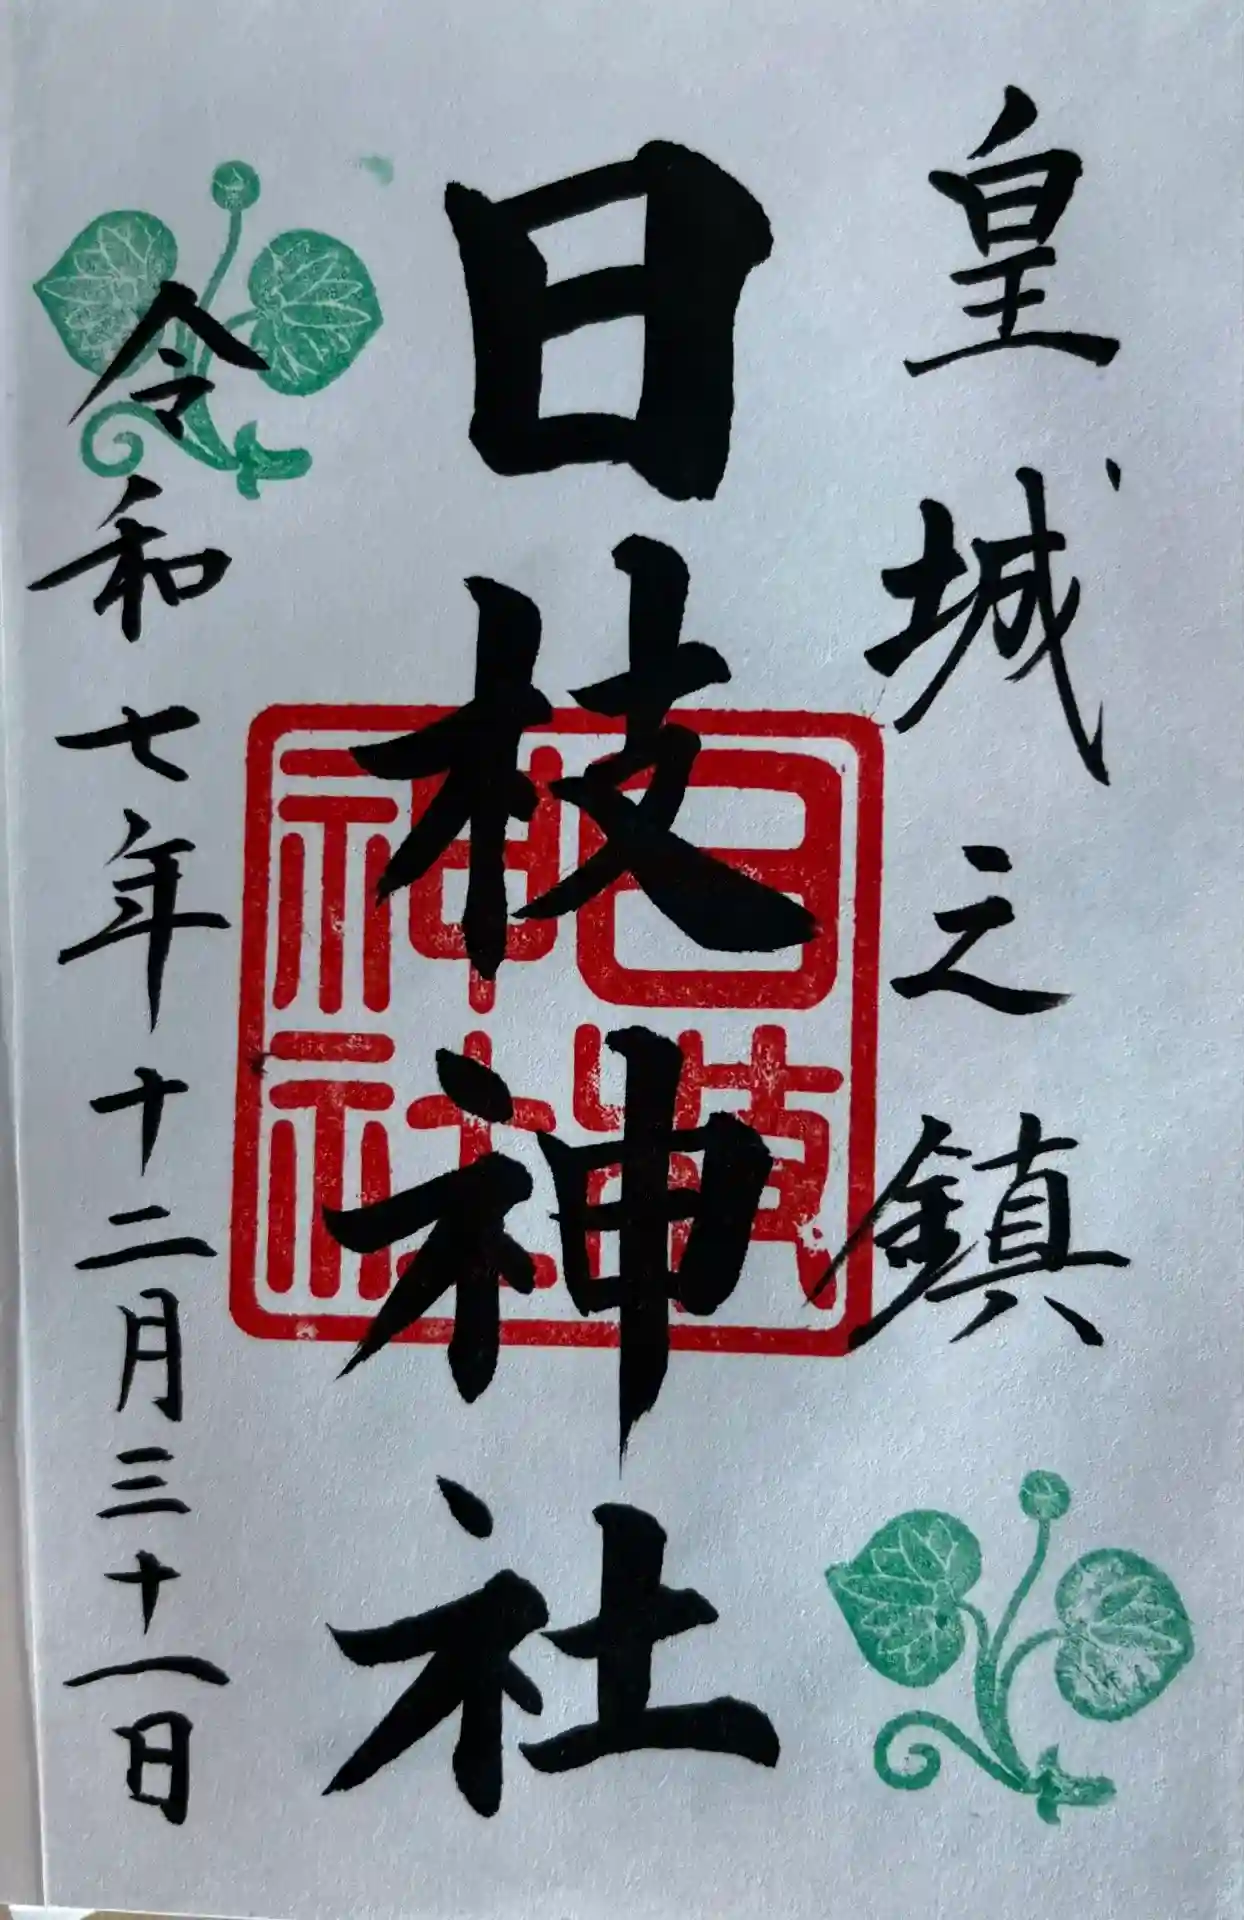 皇城之鎮
日枝神社
日枝神社
令和七年十二月三十一日